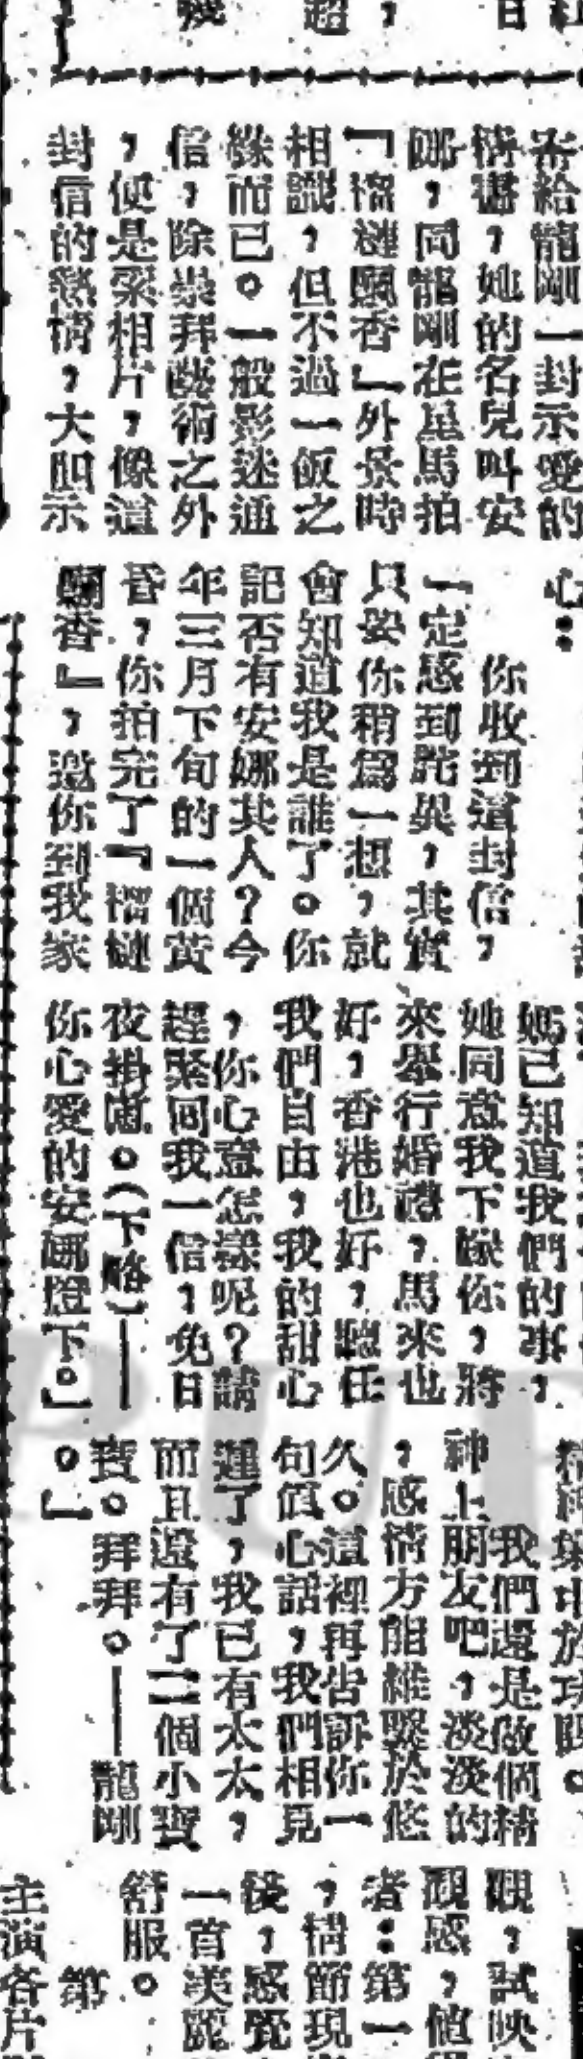 寄給龍剛一封示愛的
情書，她的名兒叫安
娜，同龍剛在星馬拍
「榴槤飄香」外景時
相識，但不過一飯之
緣而已。一般影迷通
信，除崇拜藝術之外
，便是索相片，像這
封信的熱情，大胆示
心：
你收到這封信，
一定感到詫異，其實
只要你稍爲一想，就
會知道我是誰了。你
記否有安娜其人？今
年三月下旬的一個黃
昏，你拍完了『榴槤
飄香』，邀你到我家
媽已知道我們的事，
她同意我下嫁你，將
來舉行婚禮，馬來也
好，香港也好，聽任
我們自由，我的甜心
，你心意怎樣呢？請
趕緊回我一信，免日
夜掛慮。（下略）——
你心愛的安娜燈下。」
我們還是做個精
神上朋友吧，淡淡的
，感情方能維繫於悠
久。這裡再告訴你一
句傾心話，我們相見
遲了，我已有太太，
而且還有了二個小寶
寶。拜拜。——龍剛
。」
觀，試映
觀感，他
者：第一
，情節現
後，感覺
一首美麗
舒服。
第
主演各片